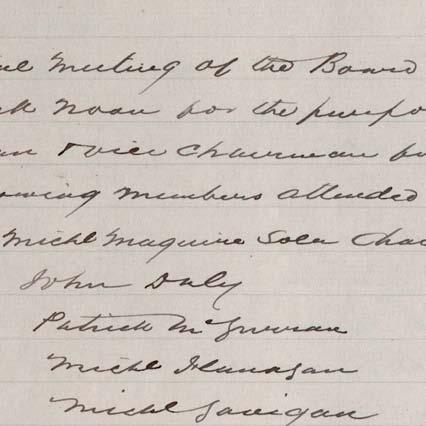 ual Meeting of the Board
ck Noon for the purpo
an & vice Chairman fo
owing members attended
Michl Maguire Solr Chai
John Daly
Patrick McGurran
Michl Flanagan
Michl Gavigan